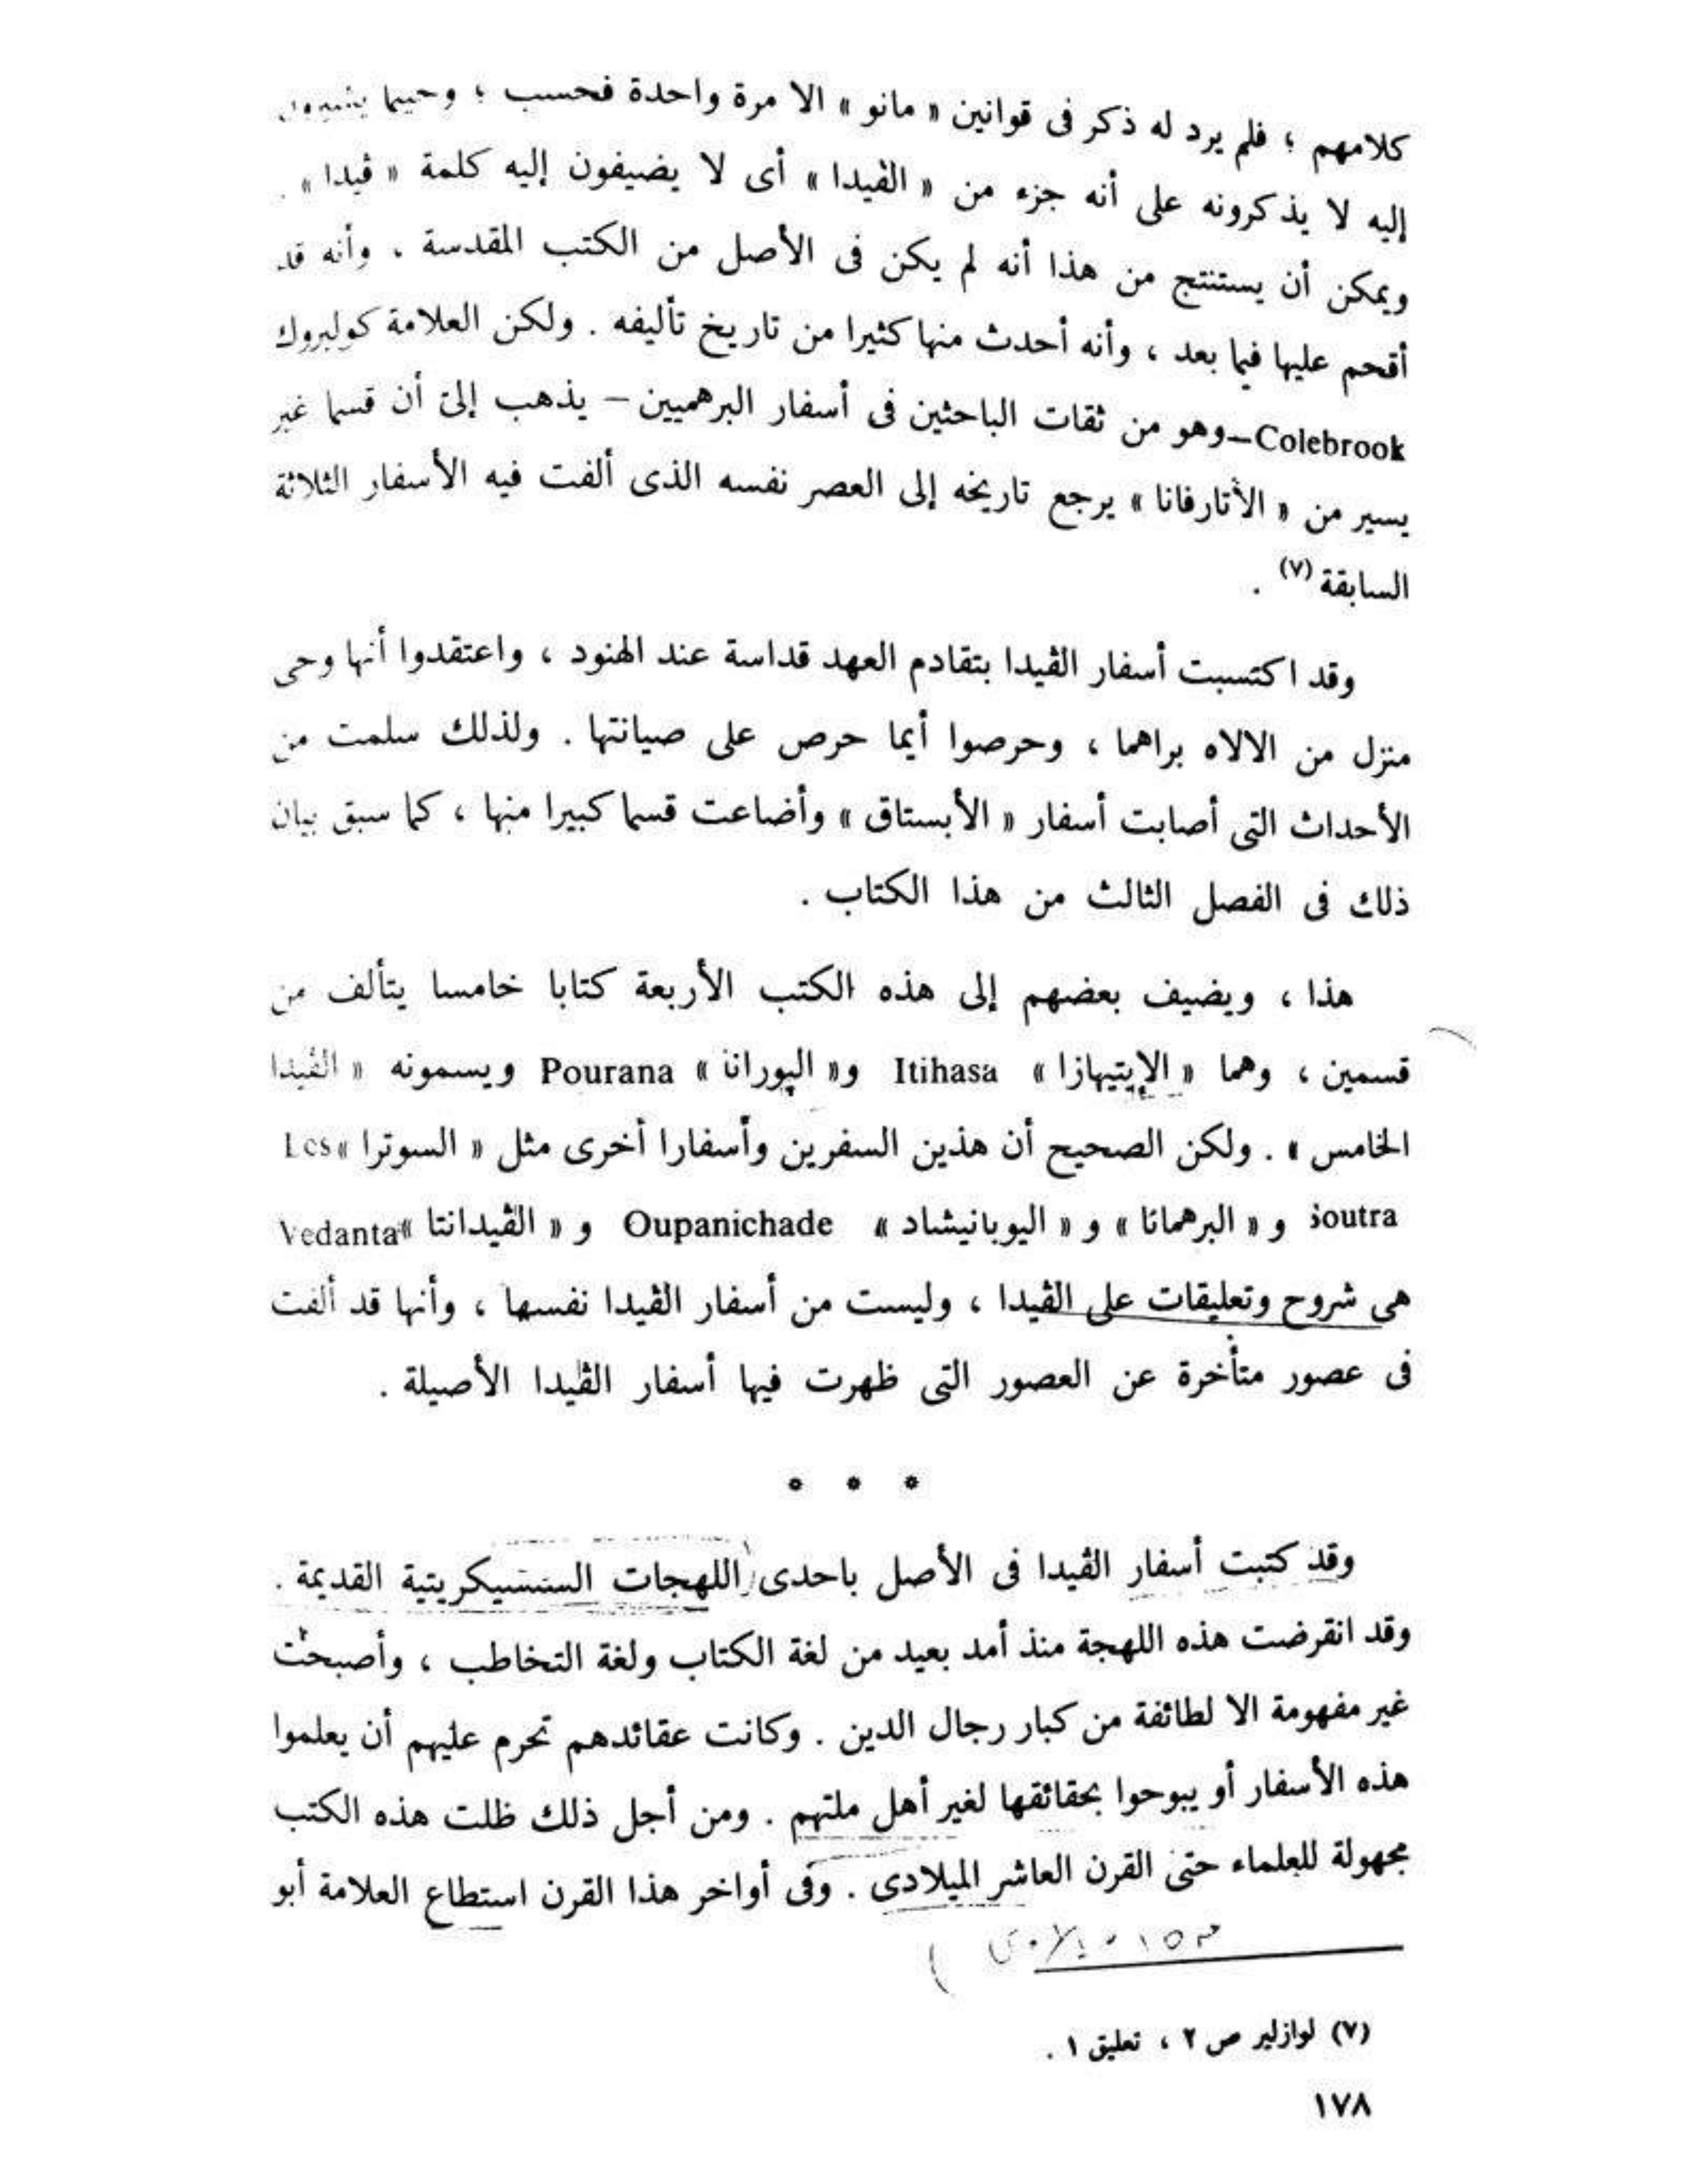 كلامهم ؛ فلم يرد له ذكر فى قوانين « مانو » الا مرة واحدة فحسب ؛ وحينما يشيرون
إليه لا يذكرونه على أنه جزء من « الڤيدا » أى لا يضيفون إليه كلمة « ڤيدا » .
ويمكن أن يستنتج من هذا أنه لم يكن فى الأصل من الكتب المقدسة . وأنه قد
أقحم عليها فيما بعد ، وأنه أحدث منها كثيرا من تاريخ تأليفه . ولكن العلامة كولبروك
Colebrook – وهو من ثقات الباحثين فى أسفار البرهميين – يذهب إلى أن قسما غير
يسير من « الأتارفانا » يرجع تاريخه إلى العصر نفسه الذى ألفت فيه الأسفار الثلاثة
السابقة (٧) .
وقد اكتسبت أسفار الڤيدا بتقادم العهد قداسة عند الهنود ، واعتقدوا أنها وحى
منزل من الالاه براهما ، وحرصوا أيما حرص على صيانتها . ولذلك سلمت من
الأحداث التى أصابت أسفار « الأبستاق » وأضاعت قسما كبيرا منها ، كما سبق بيان
ذلك فى الفصل الثالث من هذا الكتاب .
هذا ، ويضيف بعضهم إلى هذه الكتب الأربعة كتابا خامسا يتألف من
قسمين ، وهما « الإيتيهازا » Itihasa و« الپورانا » Pourana ويسمونه « الڤيدا
الخامس » . ولكن الصحيح أن هذين السفرين وأسفارا أخرى مثل « السوترا » Les
Soutra و « البرهمانا » و « اليوبانيشاد » Oupanichade و « الڤيدانتا » Vedanta
هى شروح وتعليقات على الڤيدا ، وليست من أسفار الڤيدا نفسها ، وأنها قد ألفت
فى عصور متأخرة عن العصور التى ظهرت فيها أسفار الڤيدا الأصيلة .
* * *
وقد كتبت أسفار الڤيدا فى الأصل باحدى اللهجات السنسيكريتية القديمة .
وقد انقرضت هذه اللهجة منذ أمد بعيد من لغة الكتاب ولغة التخاطب ، وأصبحت
غير مفهومة الا لطائفة من كبار رجال الدين . وكانت عقائدهم تحرم عليهم أن يعلموا
هذه الأسفار أو يبوحوا بحقائقها لغير أهل ملتهم . ومن أجل ذلك ظلت هذه الكتب
مجهولة للعلماء حتى القرن العاشر الميلادى . وفى أواخر هذا القرن استطاع العلامة أبو
(٧) لوازلير ص ٢ ، تعليق ١ .
١٧٨